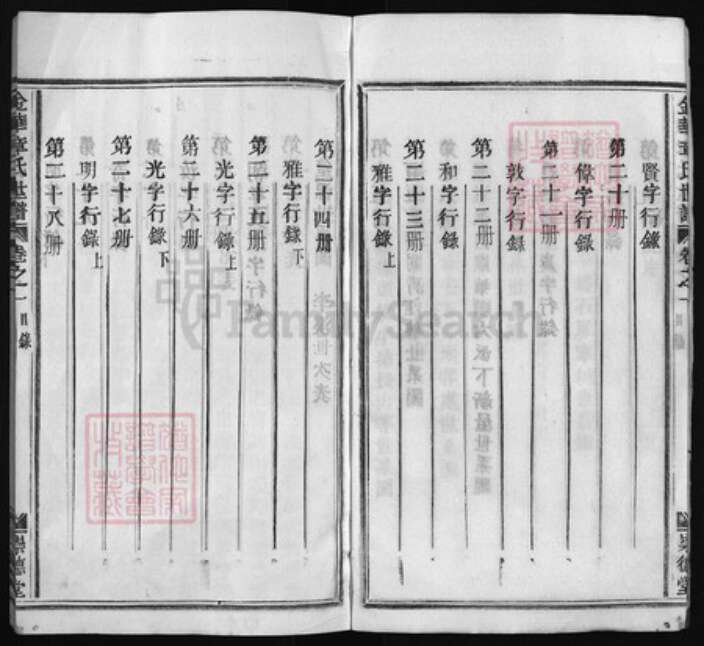 賢字行錄
第二十册
偉字行錄
第二十一册
敦字行錄
第二十二册
和字行錄
第二十三册
雅字行錄上
金華章氏世譜
卷之一
目錄
崇德堂
第二十四册
雅字行錄下
第二十五册
光字行錄上
第二十六册
光字行錄下
第二十七册
明字行錄上
第二十八册
金華章氏世譜
卷之一
目錄
崇德堂
FamilySearch